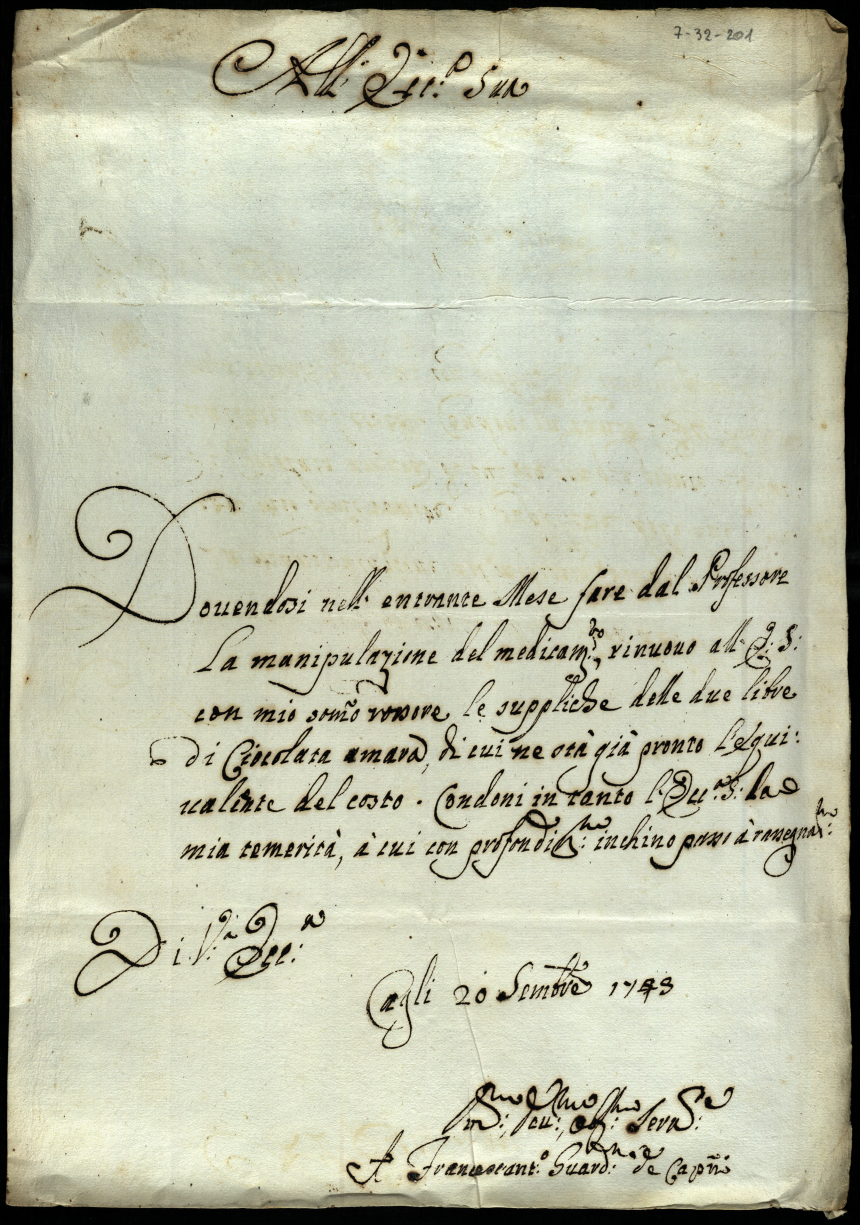 7-32-201
All' Ecc.ª Sua
Douendosi nell' entrante Mese fare dal Professore
La manipulazione del medicam.to, rinuovo all' E: S:
con mio som̃o rossore le suppliche delle due libre
di Cioccolata amara, di cui ne stà già pronto l'equi:
ualente del costo. Condoni in tanto l'Ecc.ª S: la
mia temerità, à cui con profondis.mo: inchino passo à rassegnar.mi:
Di V.ª Ecc:ª
Cagli 20 Sembre 1743
Deu:mo, ob:mo Seru:e
Francescant.o Guard:no de Capp̃ni